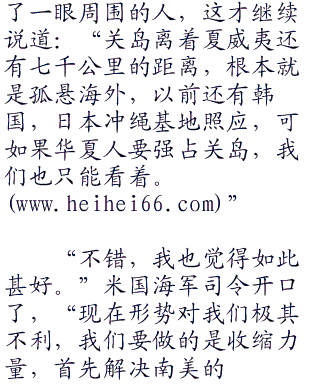 了一眼周围的人，这才继续
说道：“关岛离着夏威夷还
有七千公里的距离，根本就
是孤悬海外，以前还有韩
国，日本冲绳基地照应，可
如果华夏人要强占关岛，我
们也只能看着。
(www.heihei66.com)”
“不错，我也觉得如此
甚好。”米国海军司令开口
了，“现在形势对我们极其
不利，我们要做的是收缩力
量，首先解决南美的